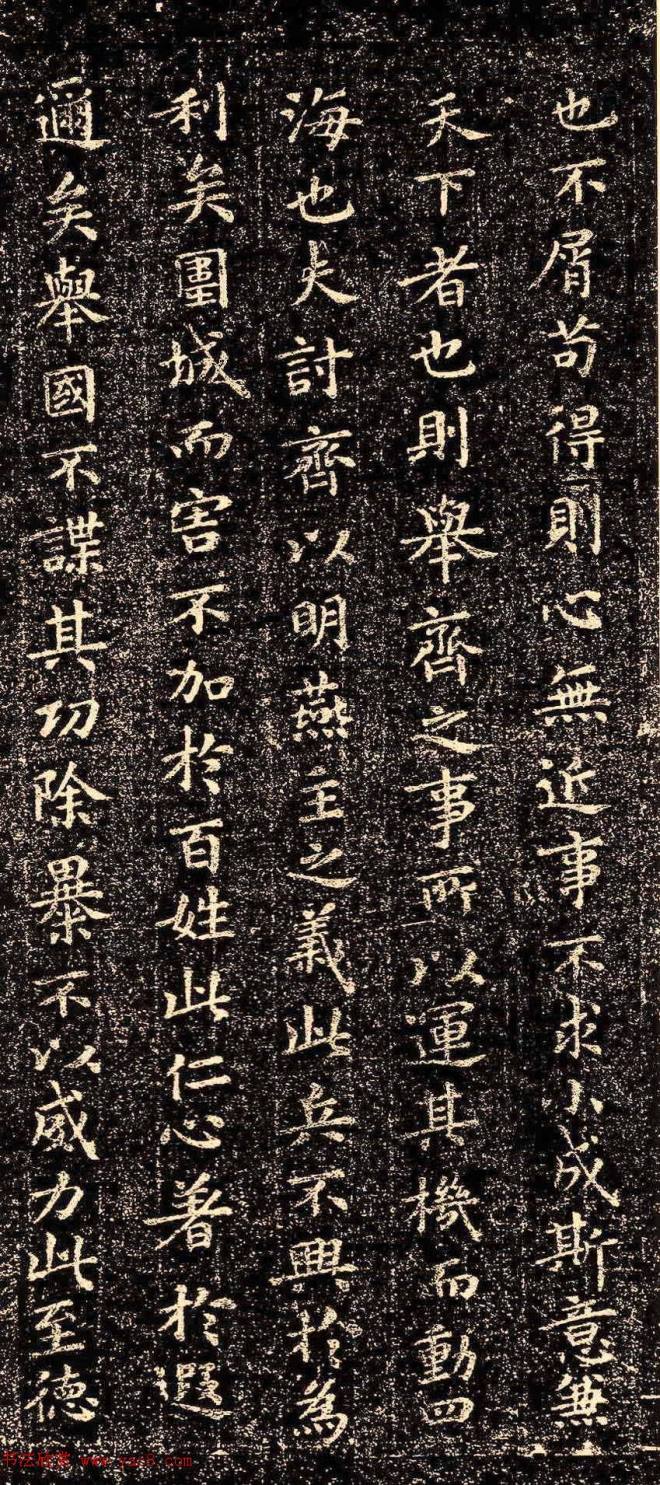 也不屑苟得則心無近事不求小成斯意兼
天下者也則舉齊之事所以運其機而動四
海也夫討齊以明燕主之義此兵不興於為
利矣圍城而害不加於百姓此仁心著於遐
邇矣舉國不謀其功除暴不以威力此至德